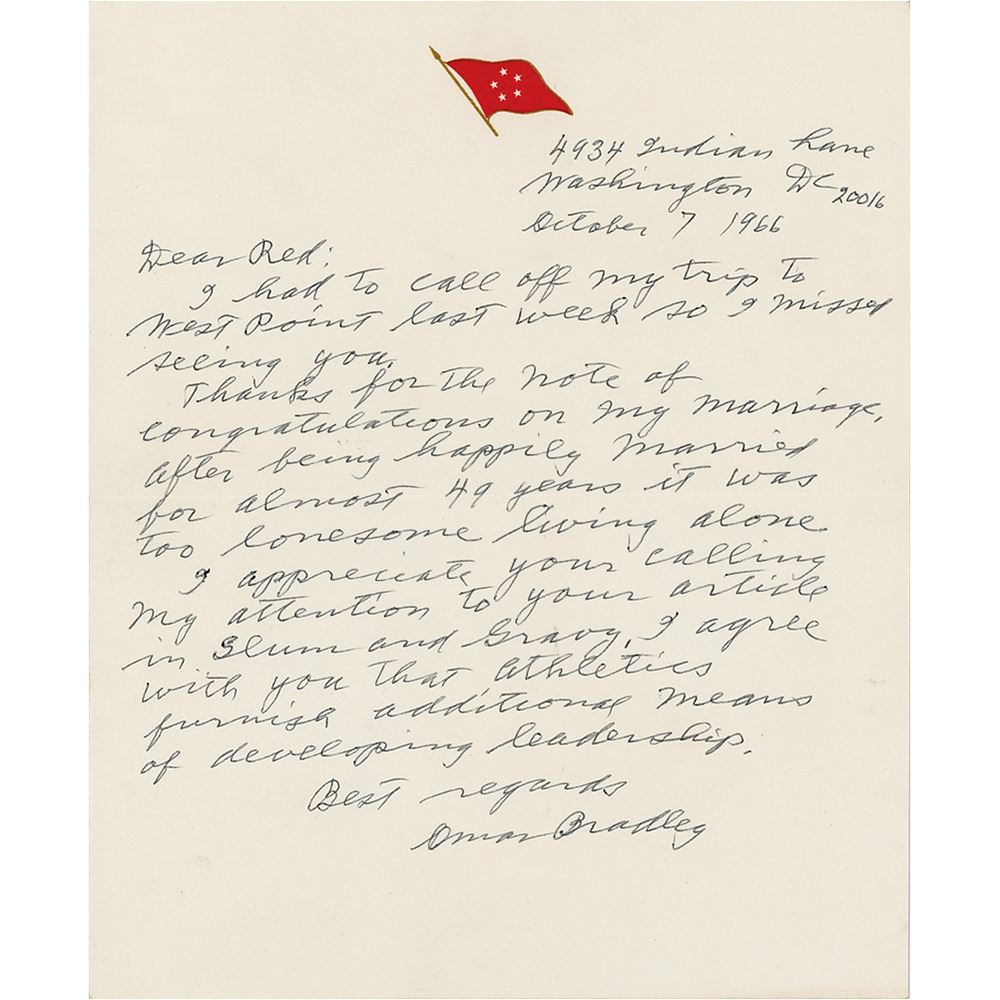 4934 Indian Lane
Washington DC 20016
October 7 1966
Dear Red:
I had to call off my trip to
West Point last week so I missed
seeing you.
Thanks for the note of
congratulations on my marriage.
After being happily married
for almost 49 years it was
too lonesome living alone
I appreciate your calling
my attention to your article
in Slum and Gravy. I agree
with you that athletics
furnish additional means
of developing leadership.
Best regards
Omar Bradley